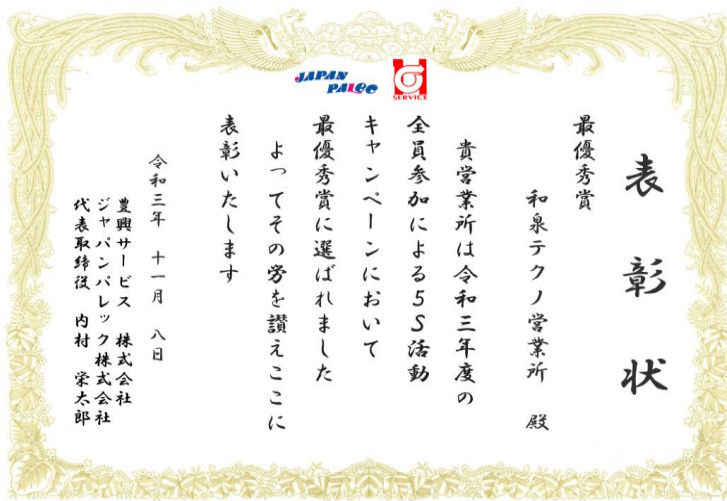 JAPAN
PALEC
SERVICE
表彰状
最優秀賞
和泉テクノ営業所 殿
貴営業所は令和三年度の
全員参加による5S活動
キャンペーンにおいて
最優秀賞に選ばれました
よってその労を讃えここに
表彰いたします
令和三年 十一月 八日
豊興サービス 株式会社
ジャパンパレック株式会社
代表取締役 内村 栄太郎